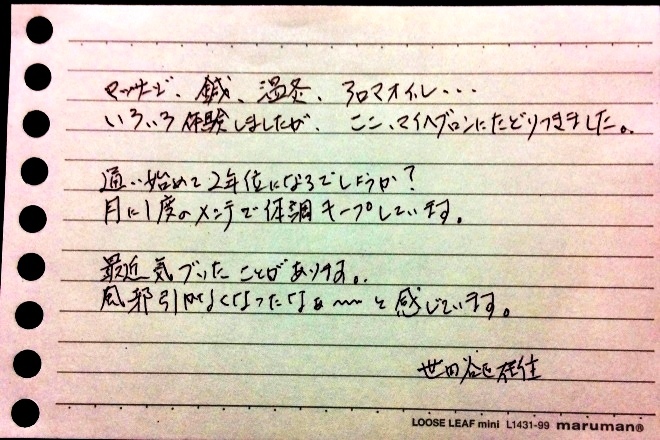 マッサージ、鍼、温灸、アロマオイル・・・
いろいろ体験しましたが、ここ、マイヘブンにたどりつきました。
通い始めて2年位になるでしょうか？
月に1度のメンテで体調キープしています。
最近気づいたことがあります。
風邪引かなくなったなぁ〜〜と感じています。
世田谷区在住
LOOSE LEAF mini L1431-99 maruman®